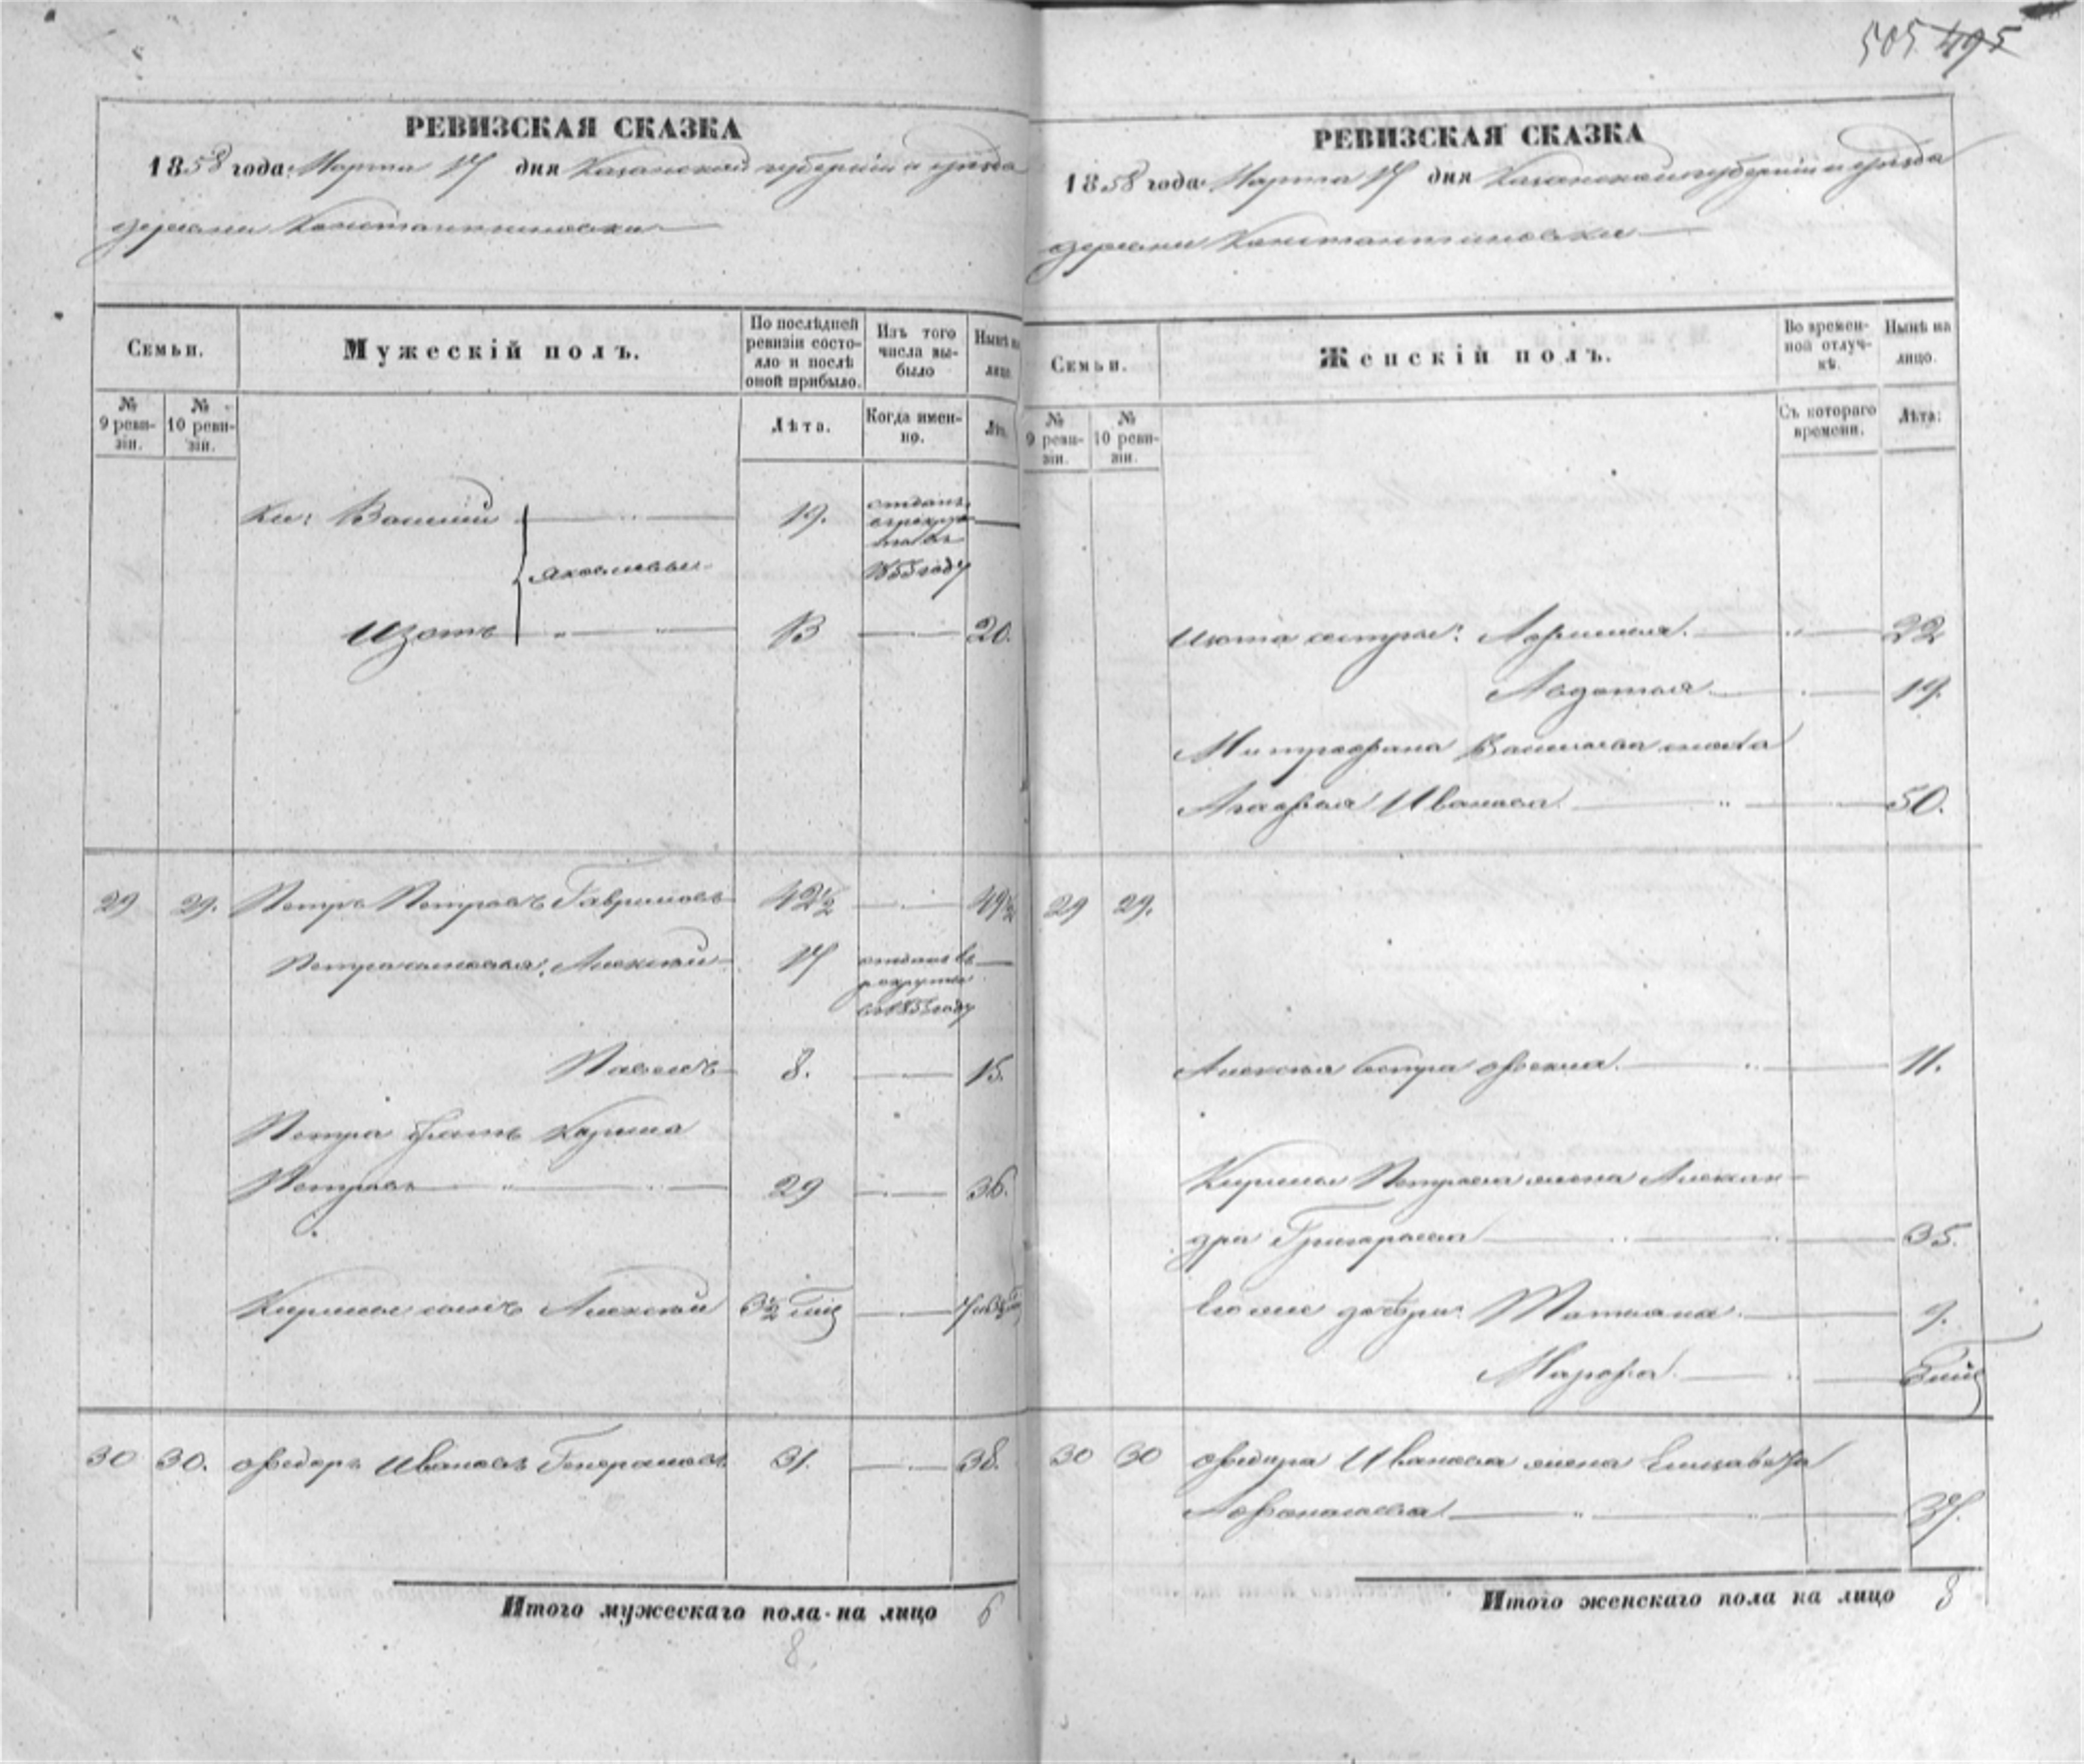 505 495
РЕВИЗСКАЯ СКАЗКА
1858 года Марта 17 дня Казанской губернии и уезда
деревни Константиновки
Семьи.
Мужескій полъ.
По послѣдней ревизіи состояло и послѣ оной прибыло.
Изъ того числа выбыло
Нынѣ на лицо.
№ 9 ревизіи.
№ 10 ревизіи.
Лѣта.
Когда именно.
Лѣта.
Василий 19. отданъ в рекруты въ 1855 году
Яковлевы
Изотъ 13 20.
29 29. Петръ Петровъ Гавриловъ 42½ 49½
Петра сыновья: Алексей 17 отданъ въ рекруты въ 1855 году
Павелъ 8. 15.
Петра братъ Кирила
Петровъ 29 36.
Кирилы сынъ Алексей 3½
30 30. Федоръ Ивановъ Генераловъ 31. 38.
Итого мужескаго пола на лицо 6
8.
РЕВИЗСКАЯ СКАЗКА
1858 года Марта 17 дня Казанской губернии и уезда
деревни Константиновки
Семьи.
Женскій полъ.
Во временной отлучкѣ.
Нынѣ на лицо.
№ 9 ревизіи.
№ 10 ревизіи.
Съ котораго времени.
Лѣта.
Изота сестры: Афимья. 22
Авдотья 19.
Митрофана Васильева жена
Агафья Иванова 50.
29 29.
Алексея сестра Фекла. 11.
Кирилы Петрова жена Алексан-
дра Григорьева 35.
Его же дочери: Татьяна 9.
Марфа
30 30 Федора Иванова жена Елисавета
Афонасьева 37.
Итого женскаго пола на лицо 8